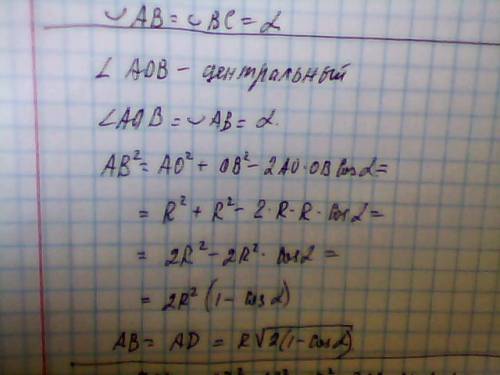 ◡AB = ◡BC = α
∠AOB - центральный
∠AOB = ◡AB = α.
AB² = AO² + OB² - 2AO·OB cos α =
= R² + R² - 2·R·R·cos α =
= 2R² - 2R²·cos α =
= 2R² (1 - cos α)
AB = AD = R√2(1 - cos α)